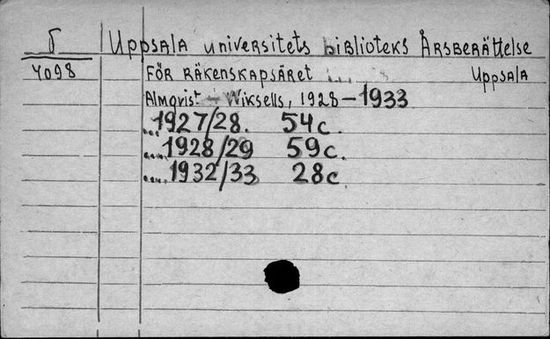 Б Uppsala universitets biblioteks Årsberättelse
4098 För räkenskapsåret ... Uppsala
Almqvist - Wiksells, 1928-1933
...1927/28. 54c.
....1928/29 59c.
....1932/33 28c.